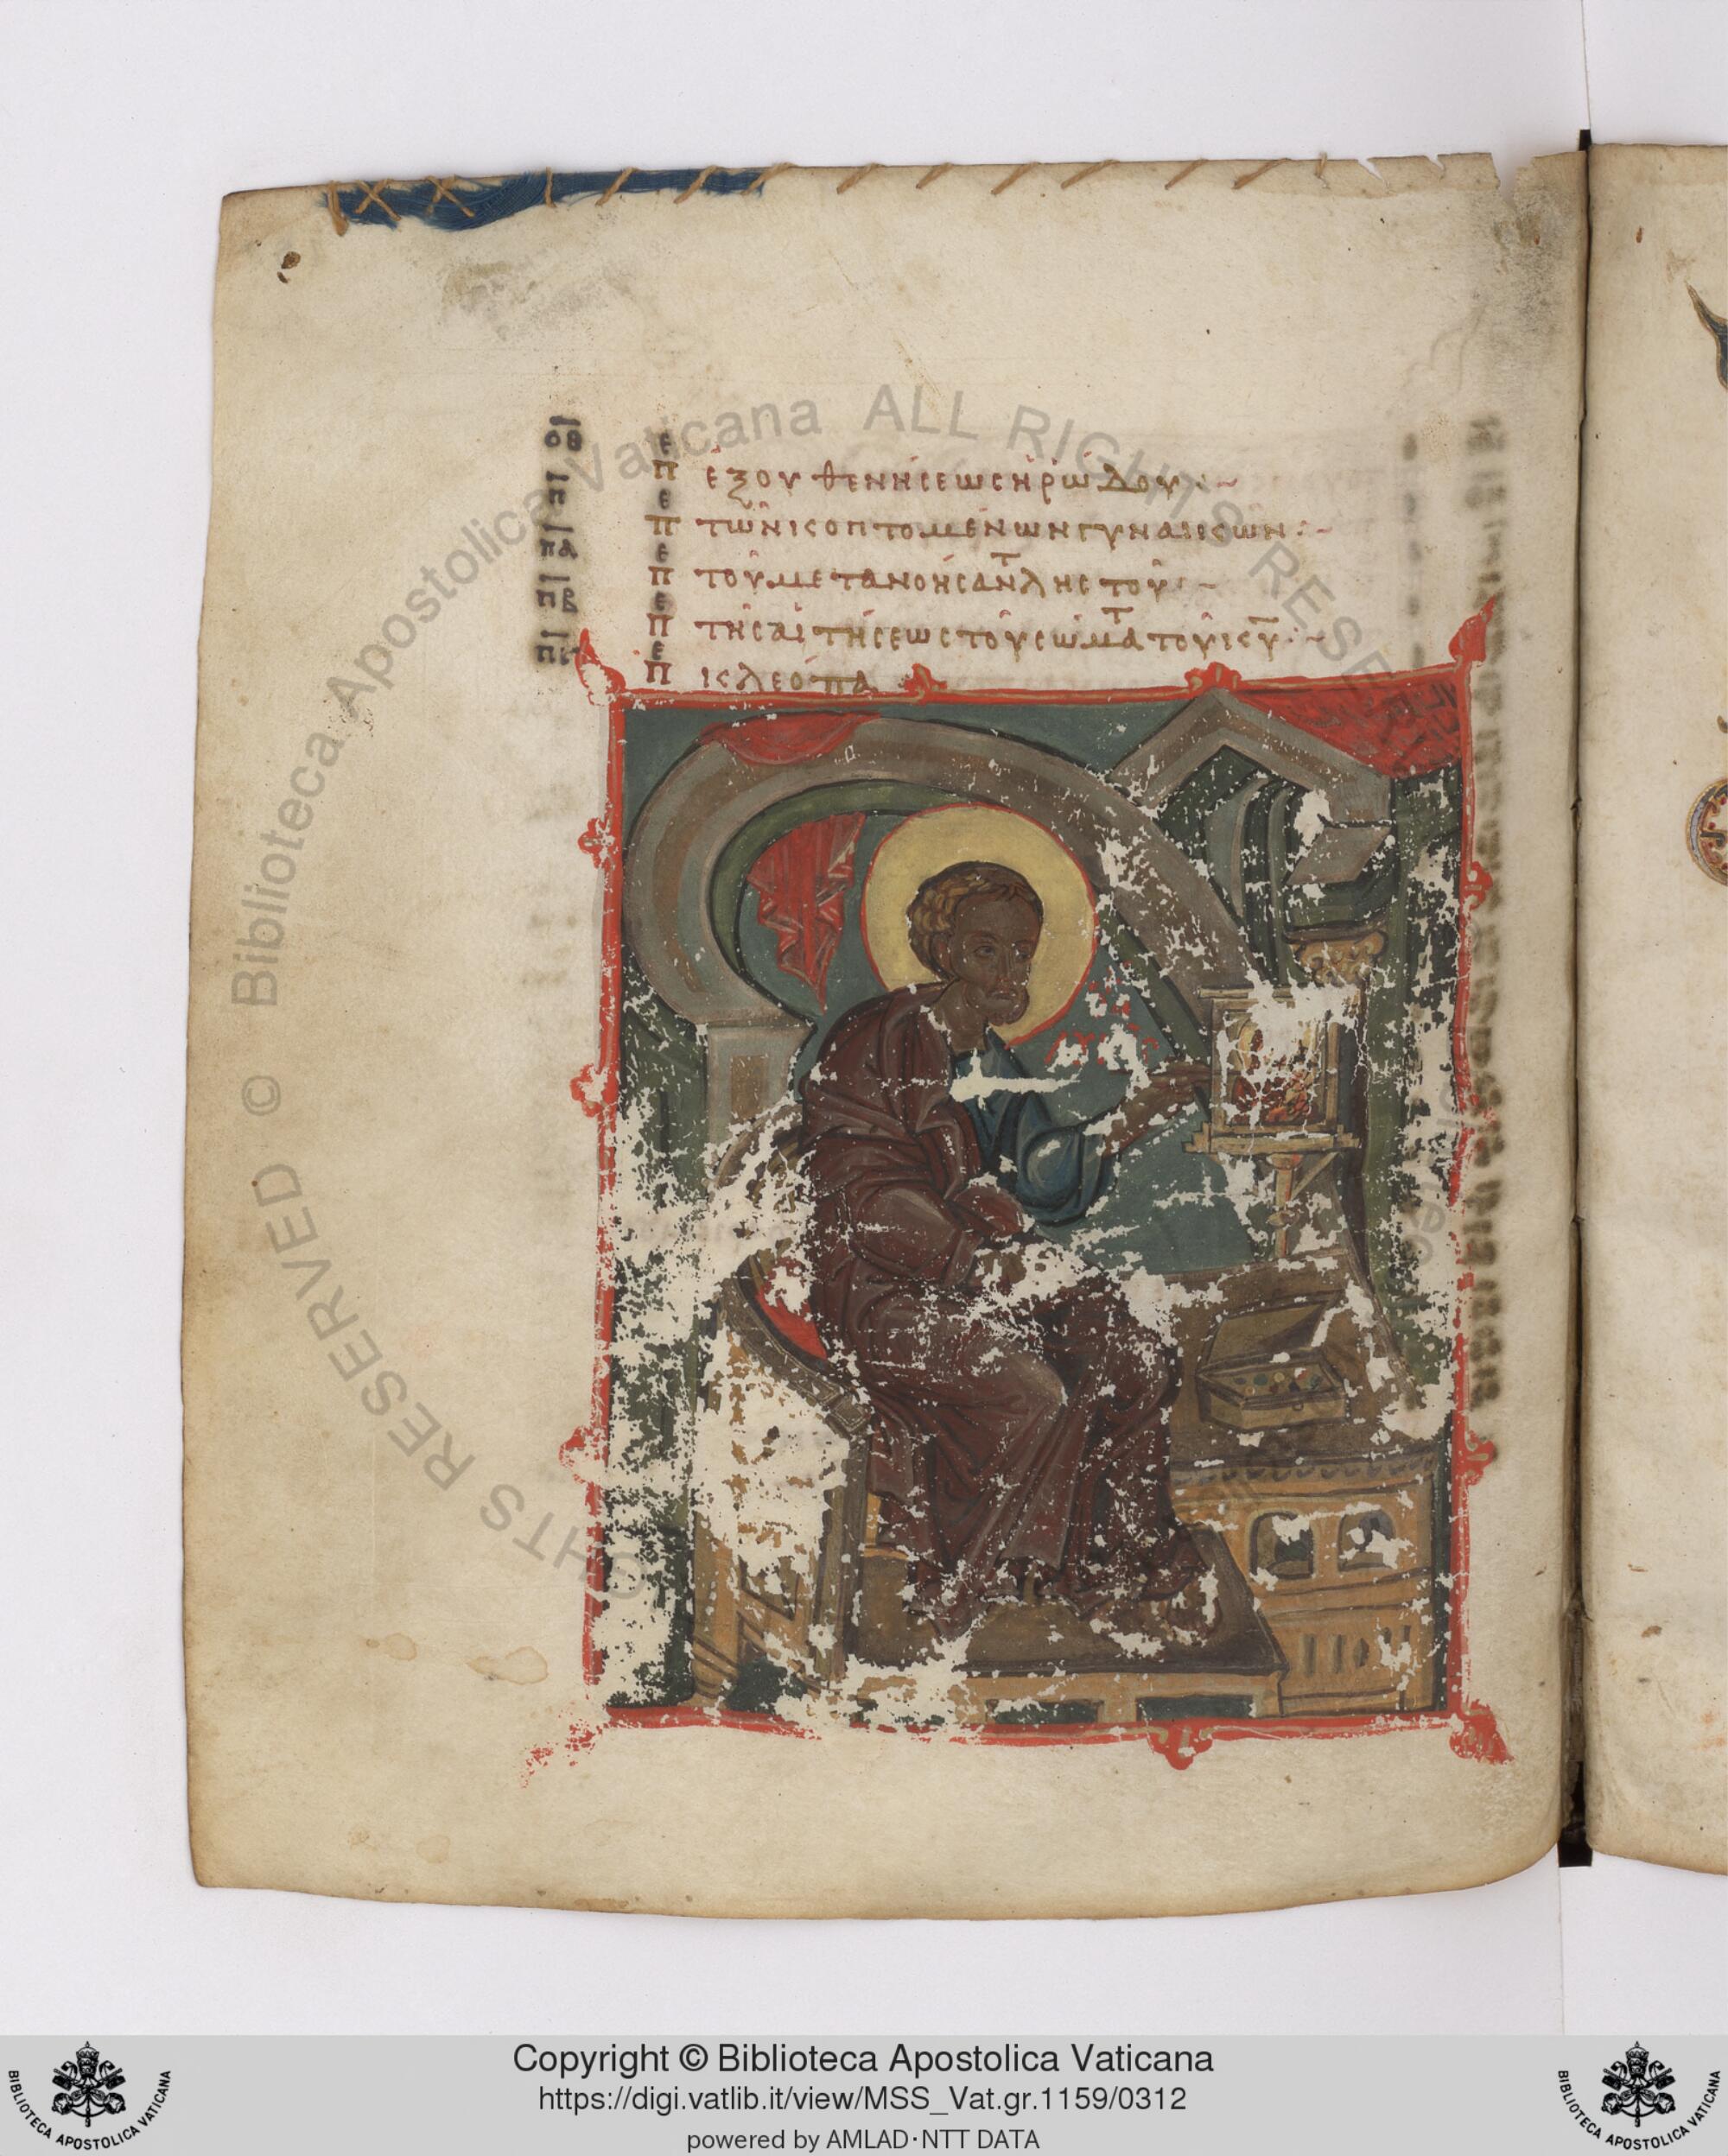 οθ πε εξουθενησεως ηρωδου :~
π πε των κοπτομενων γυναικων :~
πα πε του μετανοησαντ λης του :~
πβ πε της αιτησεως του σωματ του κυ :~
πγ πε κλεοπα
© Biblioteca Apostolica Vaticana ALL RIGHTS RESERVED
Copyright © Biblioteca Apostolica Vaticana
https://digi.vatlib.it/view/MSS_Vat.gr.1159/0312
powered by AMLAD·NTT DATA
BIBLIOTECA APOSTOLICA VATICANA
BIBLIOTECA APOSTOLICA VATICANA